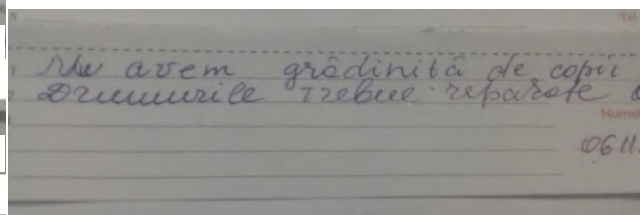 Nu avem grădiniță de copii
Drumurile trebue reparate
Nume
0611